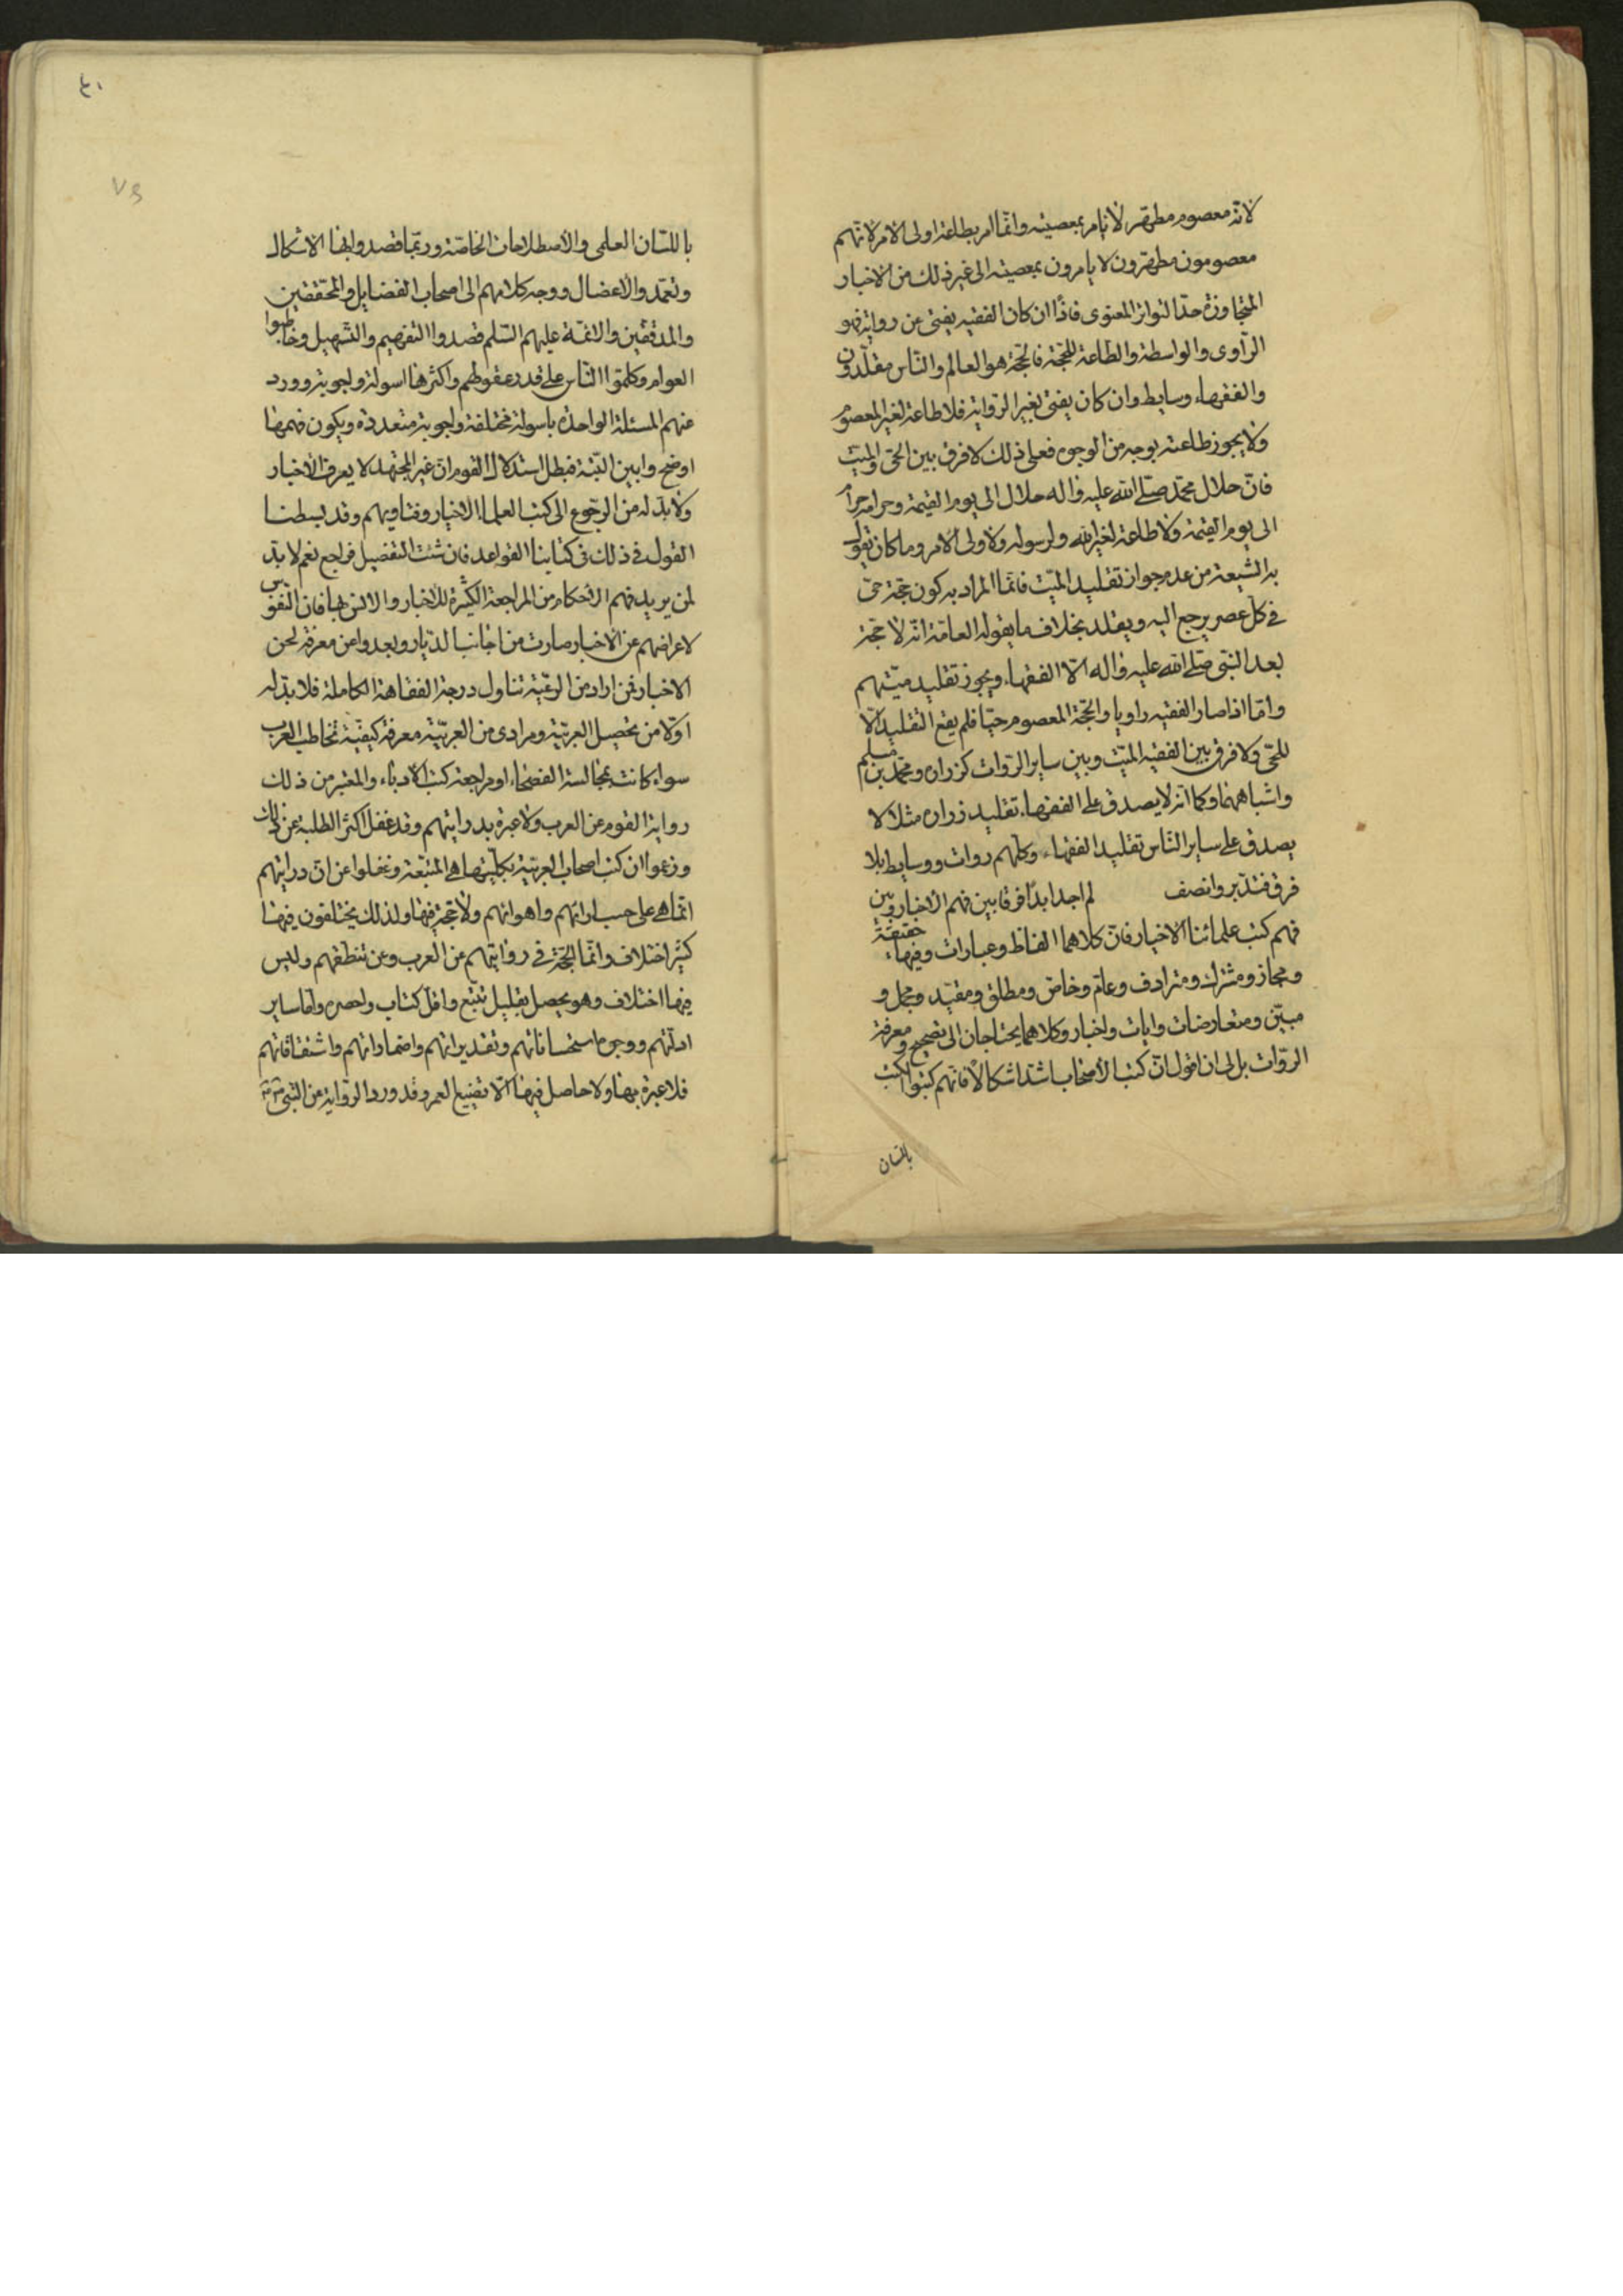 لانه معصوم مطهر لا يامر بمعصيته وانما امر بطاعة اولى الامر لانهم
معصومون مطهرون لا يامرون بمعصيته الى غير ذلك من الاخبار
المتجاوزة حد التواتر المعنوى فاذا ان كان الفقيه يفتى عن رواية فهو
الراوى والواسطة والطاعة للحجة فالحجة هو العالم والناس مقلدون
والفقهاء وسايط وان كان يفتى بغير الرواية فلا طاعة لغير المعصوم
ولا يجوز طاعته بوجه من الوجوه فعلى ذلك لا فرق بين الحى والميت
فان حلال محمد صلى الله عليه واله حلال الى يوم القيمة وحرامه حرام
الى يوم القيمة ولا طاعة لغير الله ولرسوله ولاولى الامر وما كان يقول
به الشيعة من عدم جواز تقليد الميت فانما المراد به كون حجة حى
فى كل عصر يرجع اليه ويقلد بخلاف ما يقوله العامة انه لا حجة
بعد النبى صلى الله عليه واله الا الفقهاء ويجوز تقليد ميتهم
واما اذا صار الفقيه راويا والحجة المعصوم حيا فلم يقع التقليد الا
للحى ولا فرق بين الفقيه الميت وبين ساير الروات كزراره ومحمد بن مسلم
واشباههما وكما انه لا يصدق على الفقهاء تقليد زراره مثلا لا
يصدق على ساير الناس تقليد الفقهاء وكلهم روات ووسايط بلا
فرق فتدبر وانصف لم اجد ابدا فرقا بين فهم الاخبار وبين
فهم كتب علمائنا الاخيار فان كلاهما الفاظ وعبارات وفيها حقيقة
ومجاز ومشترك ومترادف وعام وخاص ومطلق ومقيد ومجمل و
مبين ومتعارضات وايات واخبار وكلاهما يحتاجان الى تصحيح ومعرفة
الروات بل لى ان اقول ان كتب الاصحاب اشد اشكالا فانهم كتبوا الكتب
باللسان
٤٠
باللسان العلمى والاصطلاحات الخاصة وربما قصدوا بها الاشكال
وتعمدوا الاعضال ووجه كلامهم الى اصحاب الفضايل والمحققين
والمدققين والائمة عليهم السلم قصدوا التفهيم والتسهيل وخاطبوا
العوام وكلموا الناس على قدر عقولهم واكثرها اسولة واجوبة وورد
عنهم المسئلة الواحدة باسولة مختلفة واجوبة متعددة ويكون فهمها
اوضح وابين البتة فبطل استدلال القوم ان غير المجتهد لا يعرف الاخبار
ولا بد له من الرجوع الى كتب العلماء الاخيار وفتاويهم وقد بسطنا
القول فى ذلك فى كتابنا القواعد فان شئت التفصيل فراجع نعم لا بد
لمن يريد فهم الاحكام من المراجعة الكثيرة للاخبار والانس بها فان النفوس
لاعراضهم عن الاخبار صارت من اجانب الديار وبعدوا عن معرفة لحن
الاخبار فمن اراد من الرعية تناول درجة الفقاهة الكاملة فلا بد له
اولا من تحصيل العربية ومرادى من العربية معرفة كيفية تخاطب العرب
سواء كانت بمجالسة الفصحاء او مراجعة كتب الادباء والمعتبر من ذلك
رواية القوم عن العرب ولا عبرة بدرايتهم وقد غفل اكثر الطلبة عن ذلك
وزعموا ان كتب اصحاب العربية بكليتها هى المتبعة وغفلوا عن ان درايتهم
انما هى على حسب ارائهم واهوائهم ولا حجة فيها ولذلك يختلفون فيها
كثير اختلاف وانما الحجة فى روايتهم من العرب وعن تنطقهم وليس
فيها اختلاف وهو يحصل بقليل تتبع واقل كتاب واحصره واما ساير
ادلتهم ووجوه استحساناتهم وتقديراتهم واضماراتهم واشتقاقاتهم
فلا عبرة بها ولا حاصل فيها الا تضييع العمر وقد ورد الرواية من النبى